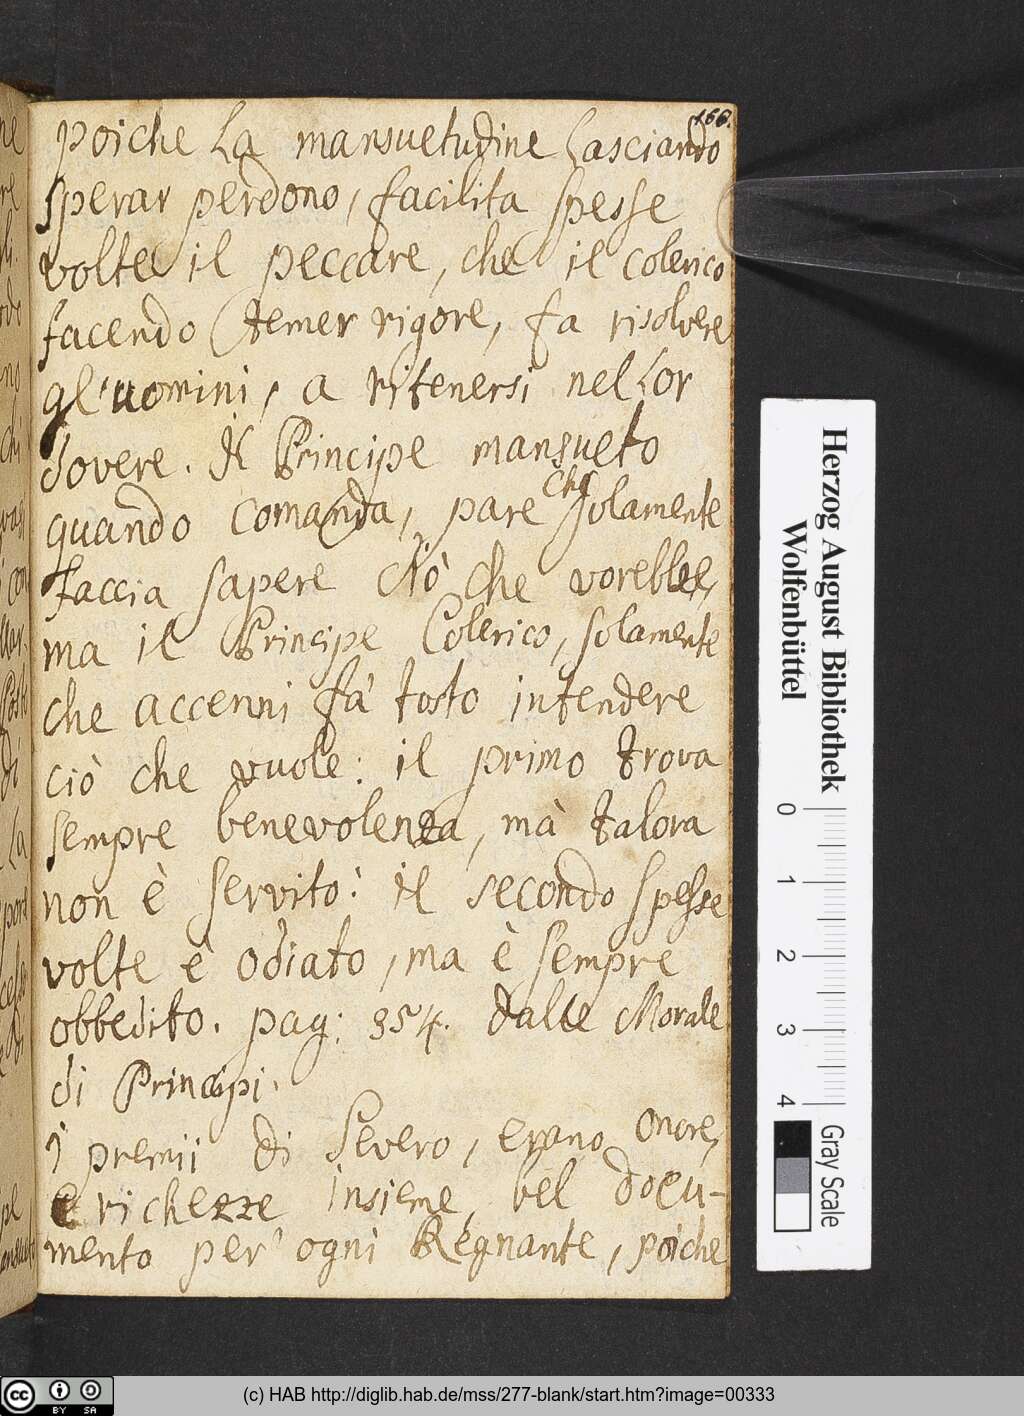 166.
poiche la mansuetudine lasciando
sperar perdono, facilita spesse
volte il peccare, che il colerico
facendo temer rigore, fa risolvere
gl'uomini, a ritenersi nel lor
dovere. Il Principe mansueto
quando comanda, pare che solamente
faccia sapere ciò che vorebbe,
ma il Principe Colerico, solamente
che accenni fà tosto intendere
ciò che vuole: il primo trova
sempre benevolenza, mà talora
non è servito: il secondo spesse
volte è odiato, ma è sempre
obbedito. pag: 354. dalle Morale
di Principi.
I premii di Severo, erano onore,
e richezze insieme, bel docu-
mento per ogni Regnante, poiche
Herzog August Bibliothek
Wolfenbüttel
0 1 2 3 4
Gray Scale
cc BY SA
(c) HAB http://diglib.hab.de/mss/277-blank/start.htm?image=00333